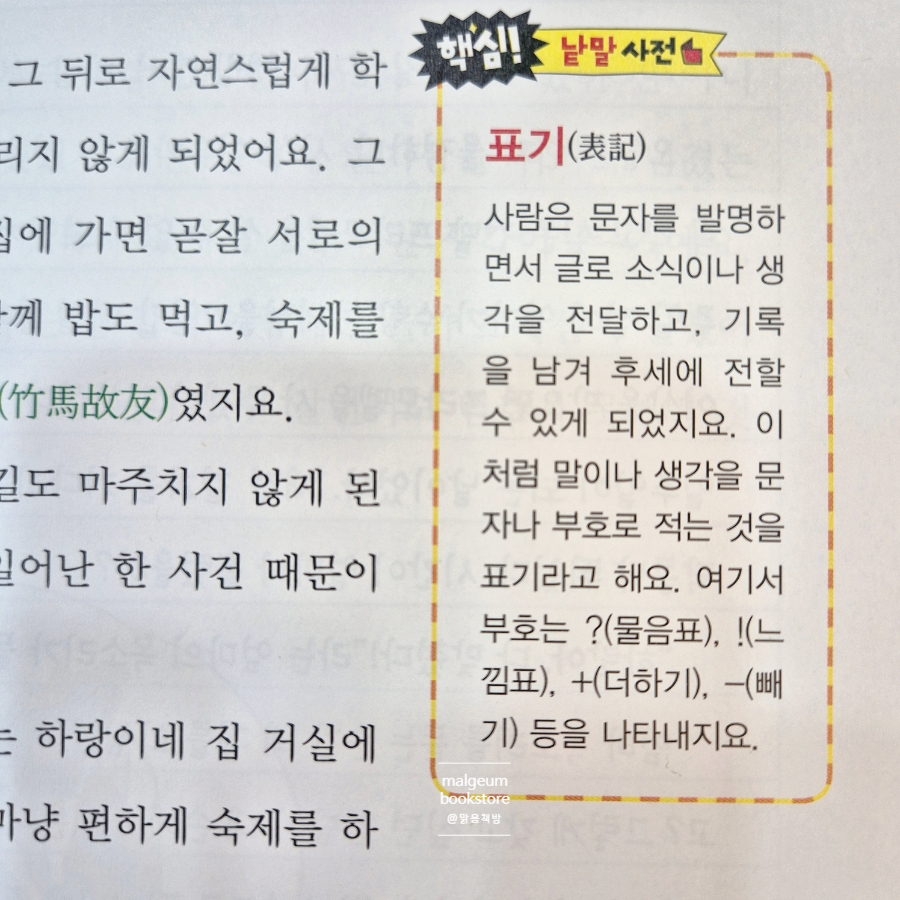 그 뒤로 자연스럽게 학
리지 않게 되었어요. 그
에 가면 곧잘 서로의
밥도 먹고, 숙제를
(竹馬故友)였지요.
길도 마주치지 않게 된
일어난 한 사건 때문이
하랑이네 집 거실에
마냥 편하게 숙제를 하
핵심! 낱말 사전
표기(表記)
사람은 문자를 발명하
면서 글로 소식이나 생
각을 전달하고, 기록
을 남겨 후세에 전할
수 있게 되었지요. 이
처럼 말이나 생각을 문
자나 부호로 적는 것을
표기라고 해요. 여기서
부호는 ?(물음표), !(느
낌표), +(더하기), −(빼
기) 등을 나타내지요.
malgeum
bookstore
@맑음책방